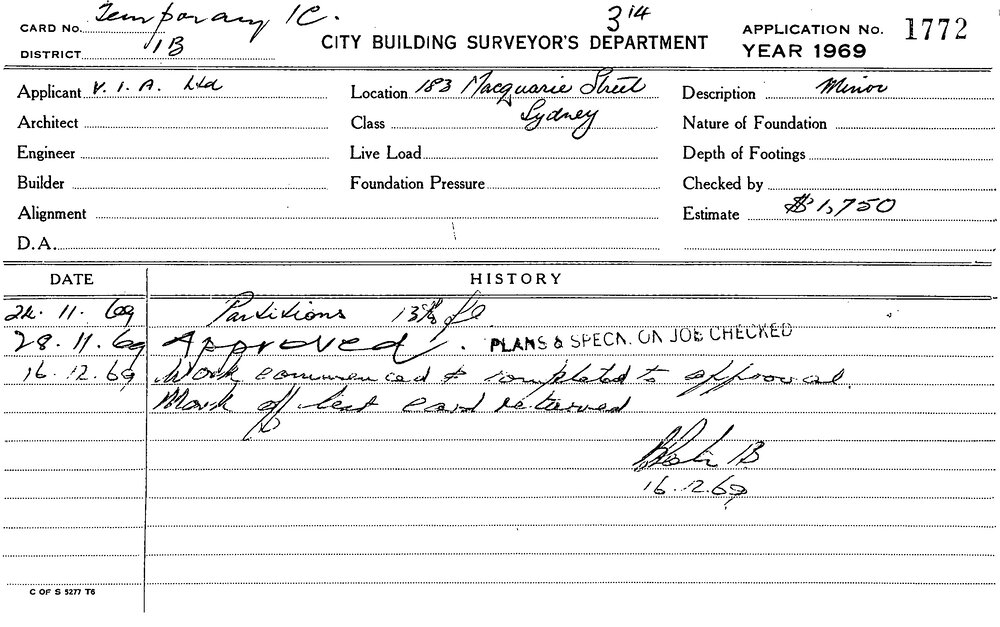 CARD NO. Temporary 1C. 3 14 APPLICATION NO. 1772
DISTRICT 1B CITY BUILDING SURVEYOR'S DEPARTMENT YEAR 1969
Applicant V. I. A. Ltd Location 183 Macquarie Street Description Minor
Architect Class Sydney Nature of Foundation
Engineer Live Load Depth of Footings
Builder Foundation Pressure Checked by
Alignment Estimate $1,750
D.A.
DATE HISTORY
24. 11. 69 Partitions 13th fl
28. 11. 69 Approved. PLANS & SPECN. ON JOB CHECKED
16. 12. 69 Work commenced & completed to approval.
Mark off last card returned
1B
16.12.69
C OF S 5277 T6